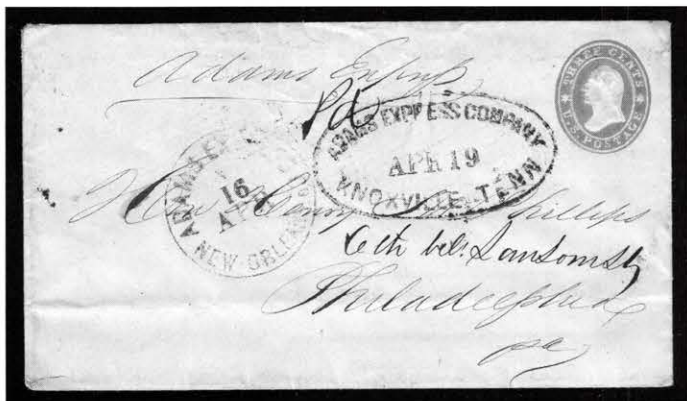 Adams Express
Pd
THREE CENTS
U.S. POSTAGE
ADAMS EXPRESS COMPANY
APR 19
KNOXVILLE, TENN
ADAMS EX
16
AP
NEW ORLEANS
Hon Henry Phillips
6th bel. Sansom St
Philadelphia
pa